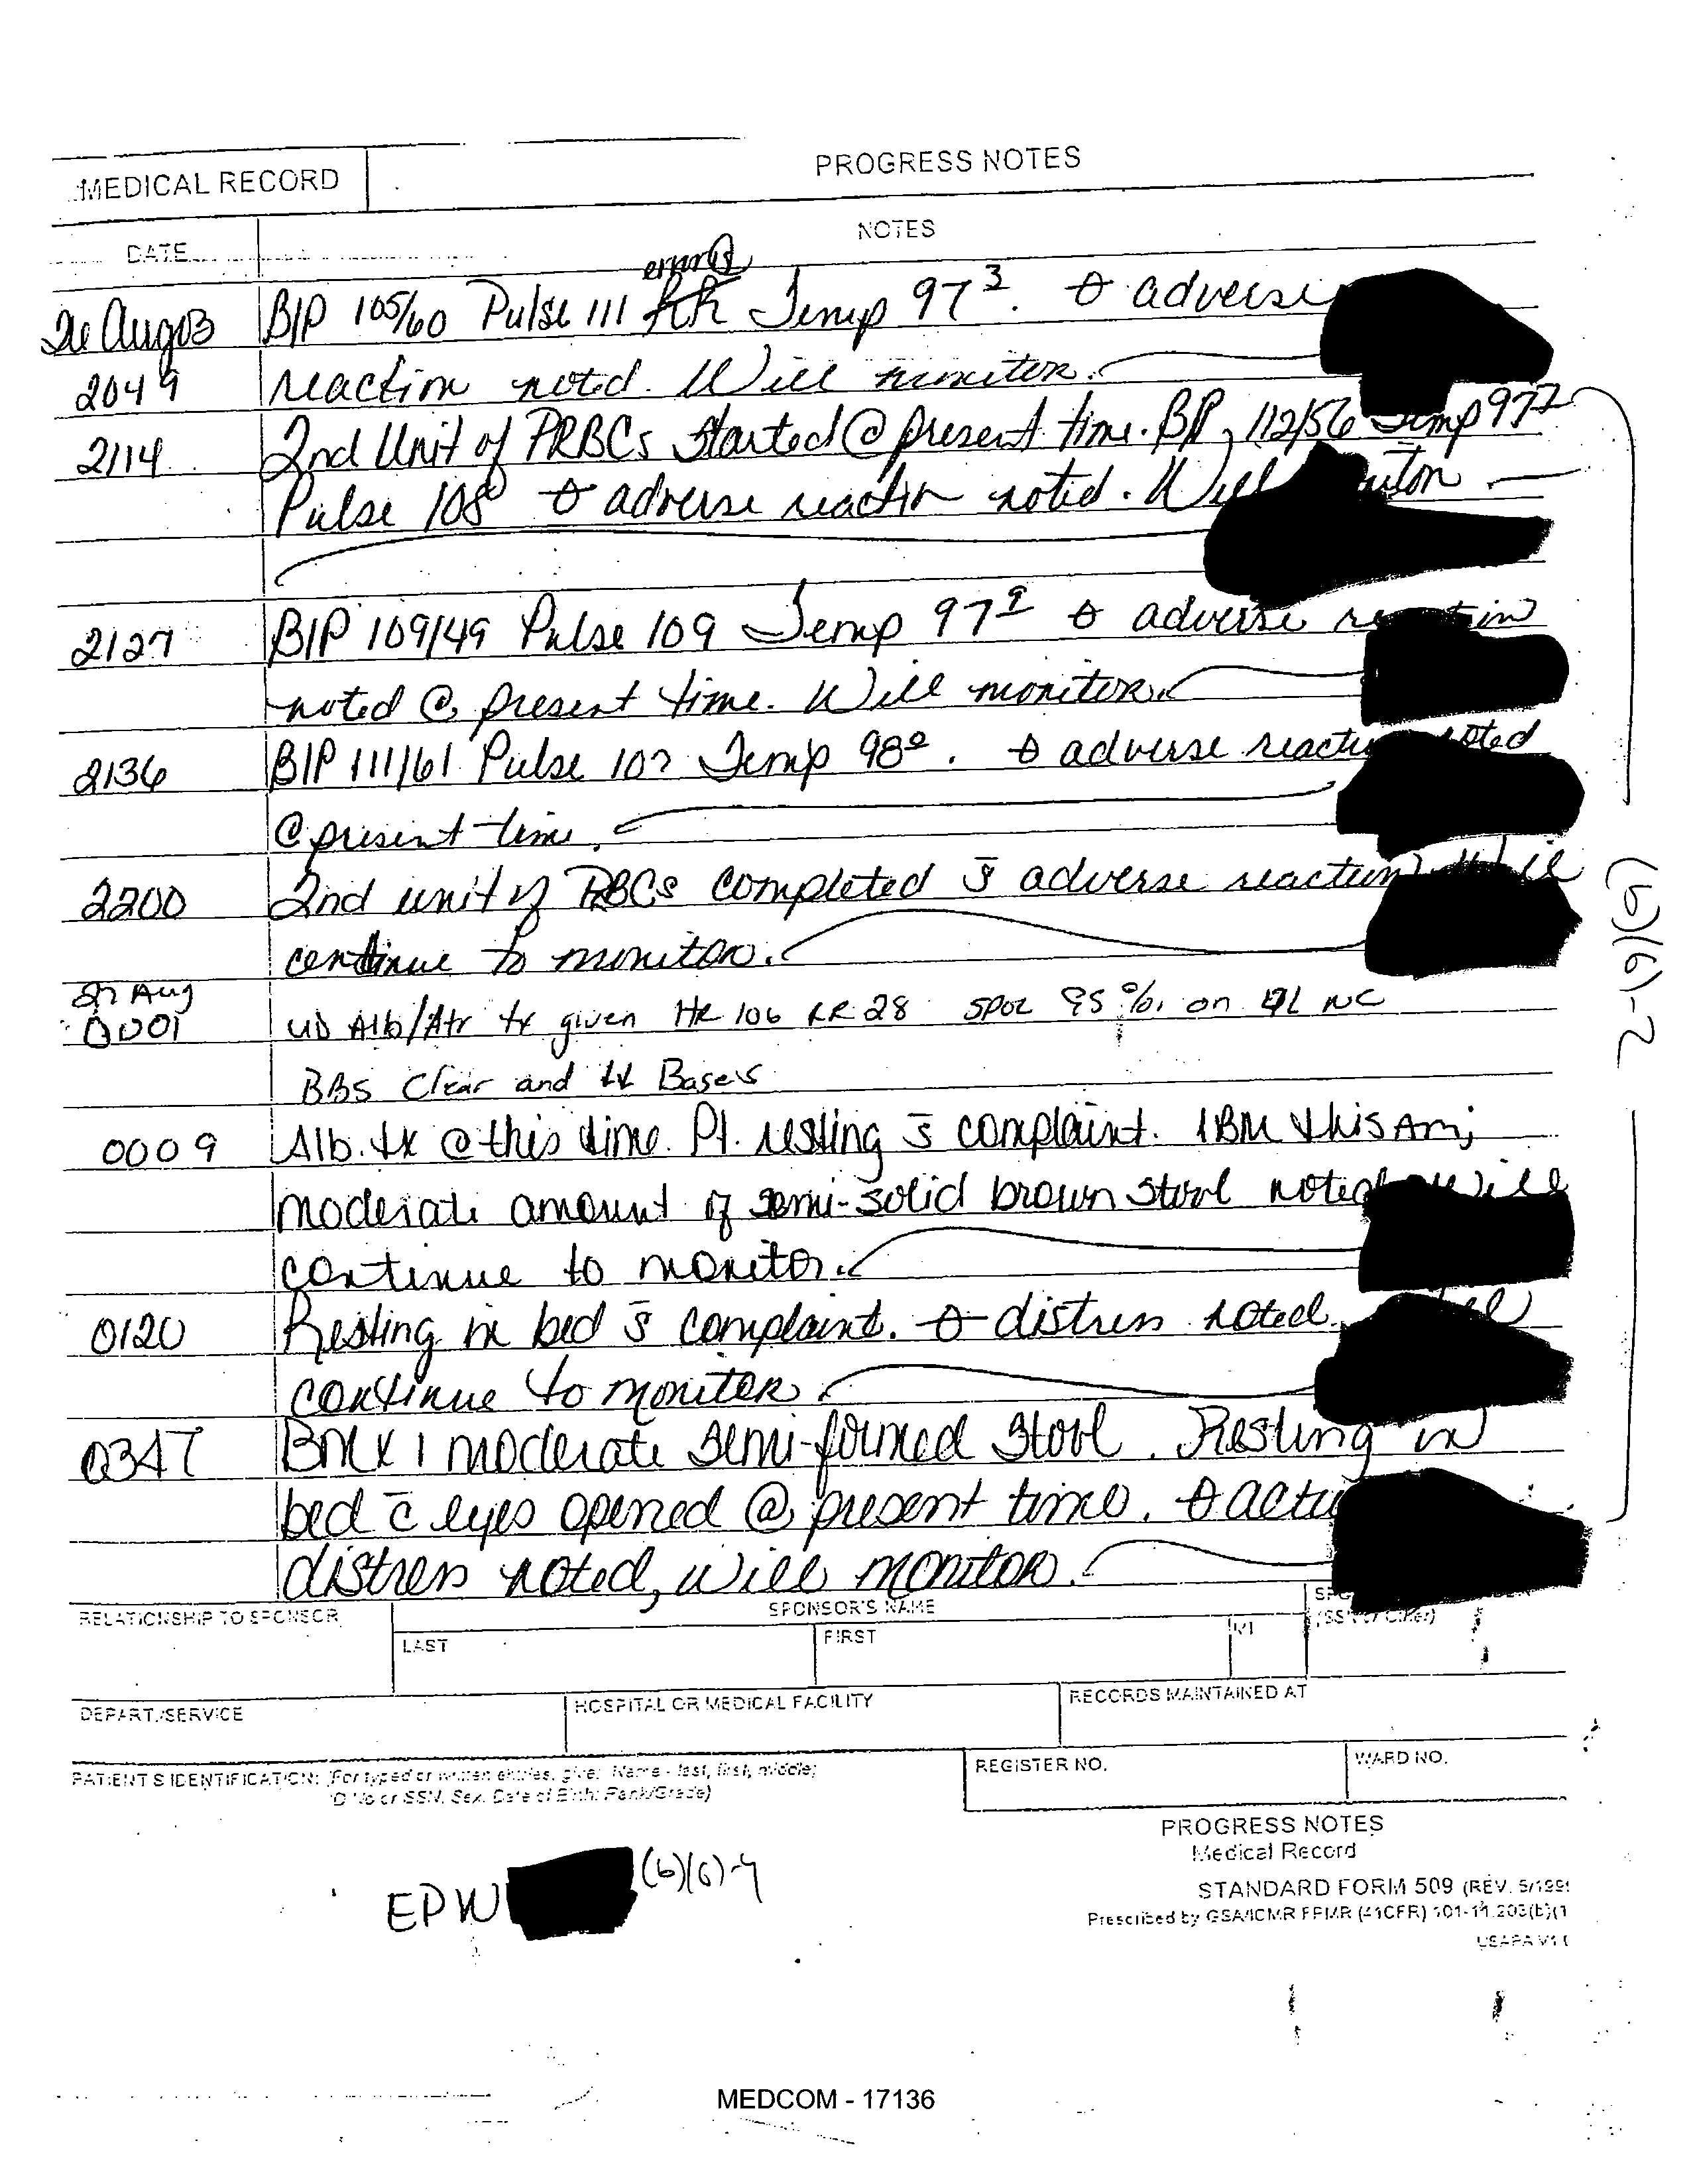 MEDICAL RECORD
PROGRESS NOTES
DATE
NOTES
error
26 Aug 03 B/P 105/60 Pulse 111 RR Temp 97³. θ adverse
2049 reaction noted. Will monitor.
2114 2nd Unit of PRBCs started @ present time. B/P 112/56 Temp 97²
Pulse 108 θ adverse reaction noted. Will
2127 B/P 109/49 Pulse 109 Temp 97⁹ θ adverse
noted @ present time. Will monitor.
2136 B/P 111/61 Pulse 107 Temp 98⁰. θ adverse noted
@ present time.
2200 2nd unit of PRBCs completed s̄ adverse reaction
continue to monitor.
27 Aug
0001 UD Alb/Atr tx given HR 106 RR 28 SPO2 95% on 2L NC
BBS Clear and Bases
0009 Alb. tx @ this time. Pt. resting s̄ complaint. 1 BM this Am;
moderate amount of semi-solid brown stool noted will
continue to monitor.
0120 Resting in bed s̄ complaint. θ distress noted.
continue to monitor.
0347 BM x 1 moderate semi-formed stool. Resting in
bed c̄ eyes opened @ present time. θ
distress noted, will monitor.
(b)(6)-2
RELATIONSHIP TO SPONSOR
SPONSOR'S NAME
LAST
FIRST
MI
(SSN or Other)
DEPART./SERVICE
HOSPITAL OR MEDICAL FACILITY
RECORDS MAINTAINED AT
PATIENT'S IDENTIFICATION: (For typed or written entries, give: Name - last, first, middle;
ID No or SSN; Sex; Date of Birth; Rank/Grade)
REGISTER NO.
WARD NO.
PROGRESS NOTES
Medical Record
STANDARD FORM 509 (REV. 5/199
Prescribed by GSA/ICMR FPMR (41CFR) 101-11.203(b)(1
USAPA V1.
EPW (b)(6)-4
MEDCOM - 17136